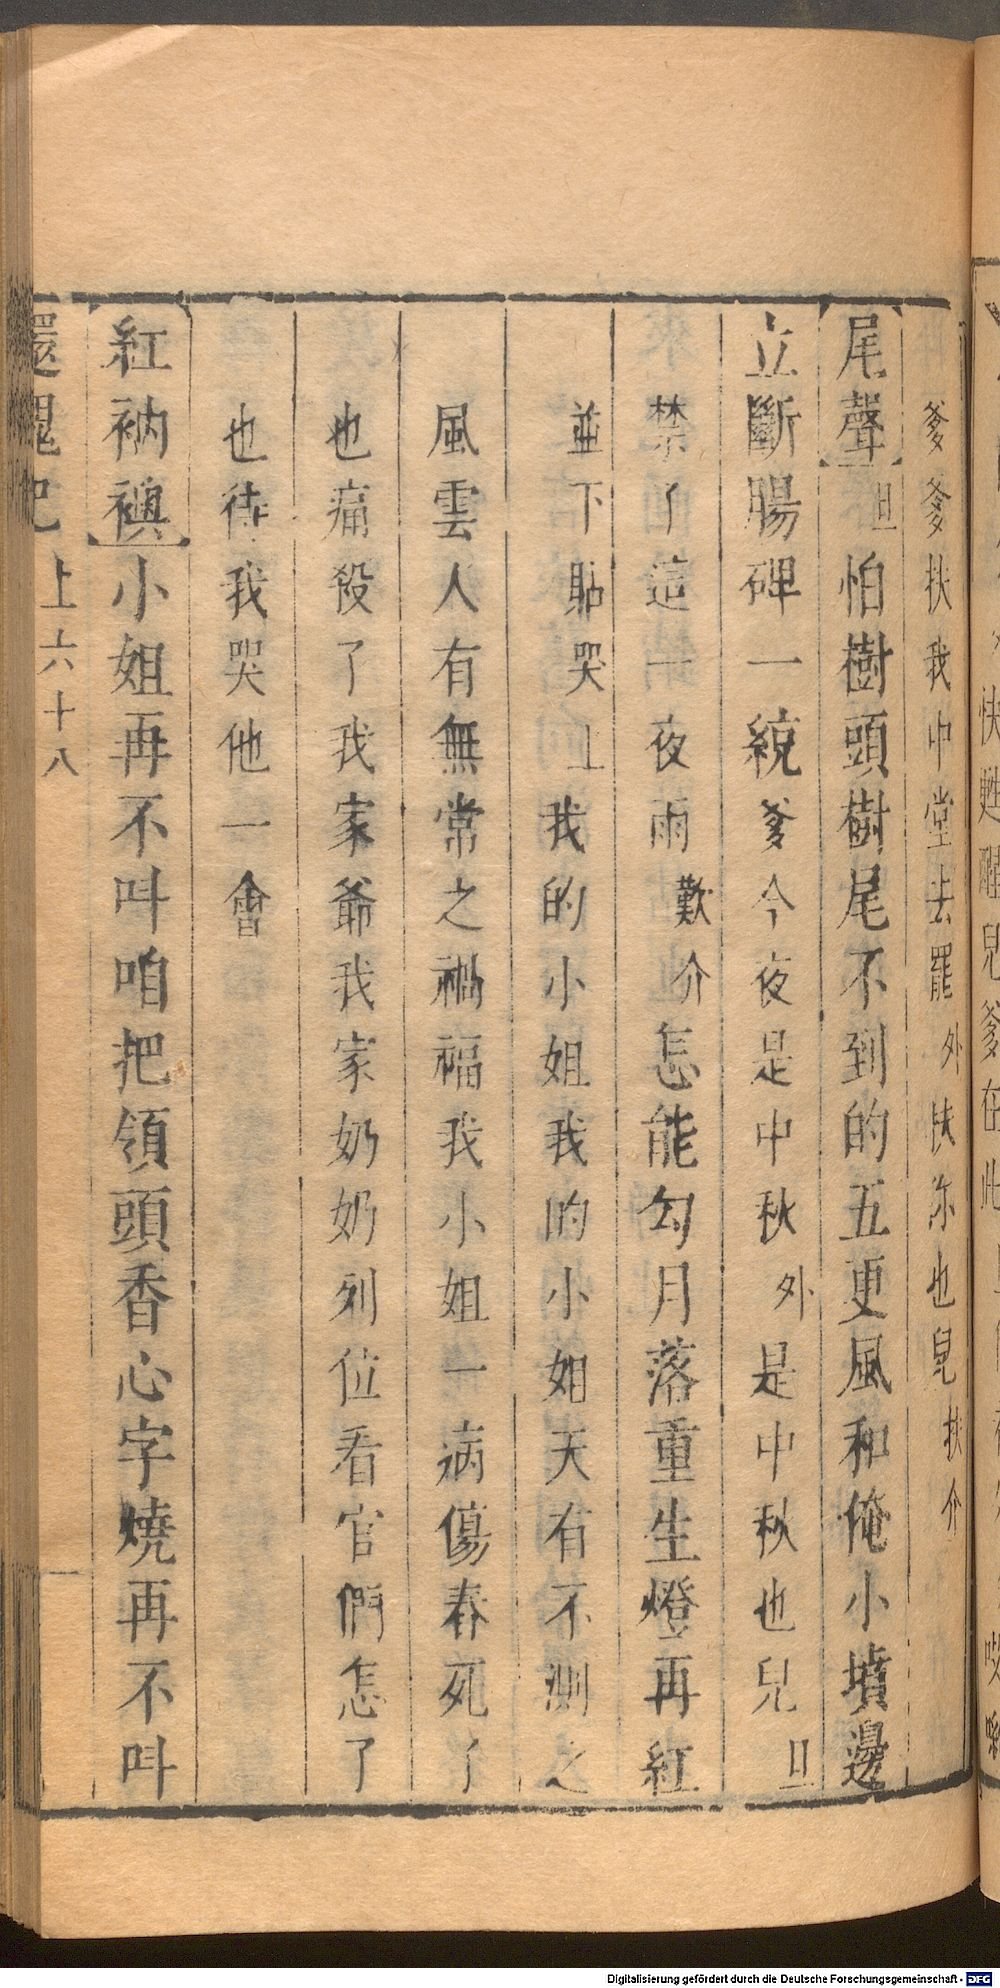 爹爹扶我中堂去罷外扶你也兒扶介
尾聲旦怕樹頭樹尾不到的五更風和俺小墳邊
立斷腸碑一統爹今夜是中秋外是中秋也兒旦
禁了這一夜雨歎介怎能勾月落重生燈再紅
並下貼哭上我的小姐我的小姐天有不測之
風雲人有無常之禍福我小姐一病傷春死了
也痛殺了我家爺我家奶奶列位看官們怎了
也待我哭他一會
紅衲襖小姐再不叫咱把領頭香心字燒再不叫
還魂記上六十八
Digitalisierung gefördert durch die Deutsche Forschungsgemeinschaft - DFG